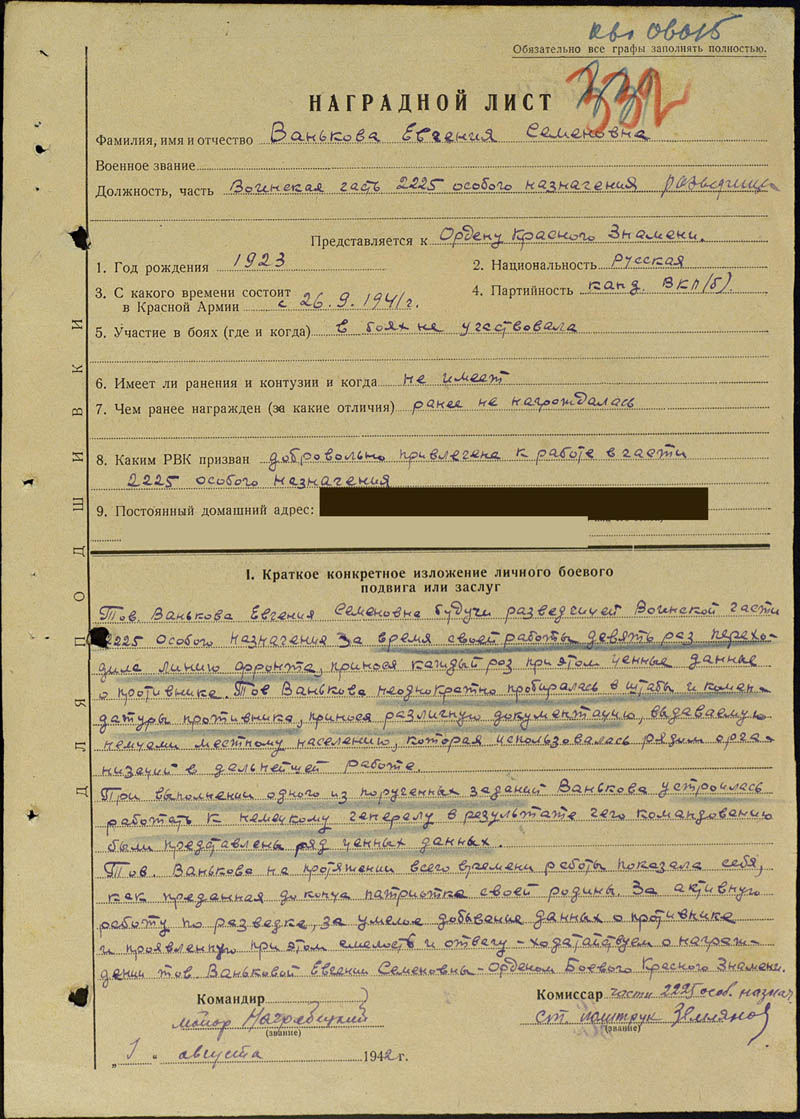 Обязательно все графы заполнять полностью.
332
НАГРАДНОЙ ЛИСТ
Фамилия, имя и отчество Ванькова Евгения Семеновна
Военное звание
Должность, часть Воинская часть 2225 особого назначения разведчица
Представляется к Ордену Красного Знамени.
1. Год рождения 1923 2. Национальность Русская
3. С какого времени состоит
в Красной Армии с 26.9.1941г. 4. Партийность канд. ВКП(б).
5. Участие в боях (где и когда) в боях не участвовала
6. Имеет ли ранения и контузии и когда не имеет
7. Чем ранее награжден (за какие отличия) ранее не награждалась
8. Каким РВК призван добровольно привлечена к работе в части
2225 особого назначения
9. Постоянный домашний адрес:
I. Краткое конкретное изложение личного боевого
подвига или заслуг
Тов. Ванькова Евгения Семеновна будучи разведчицей Воинской части
2225 Особого Назначения за время своей работы девять раз перехо-
дила линию фронта, принося каждый раз при этом ценные данные
о противнике. Тов Ванькова неоднократно пробиралась в штабы и комен-
датуры противника, принося различную документацию, выдаваемую
немцами местному населению, которая использовалась рядом орга-
низаций в дальнейшей работе.
При выполнении одного из порученных заданий Ванькова устроилась
работать к немецкому генералу в результате чего командованию
были представлены ряд ценных данных.
Тов. Ванькова на протяжении всего времени работы показала себя,
как преданная до конца патриотка своей родины. За активную
работу по разведке, за умелое добывание данных о противнике
и проявленную при этом смелость и отвагу - ходатайствуем о награж-
дении тов. Ваньковой Евгении Семеновны - Орденом Боевого Красного Знамени.
Командир Комиссар части 2225 особ. назнач.
майор ст. политрук
(звание) (звание)
"1" августа 1942 г.
ДЛЯ ПОДШИВКИ